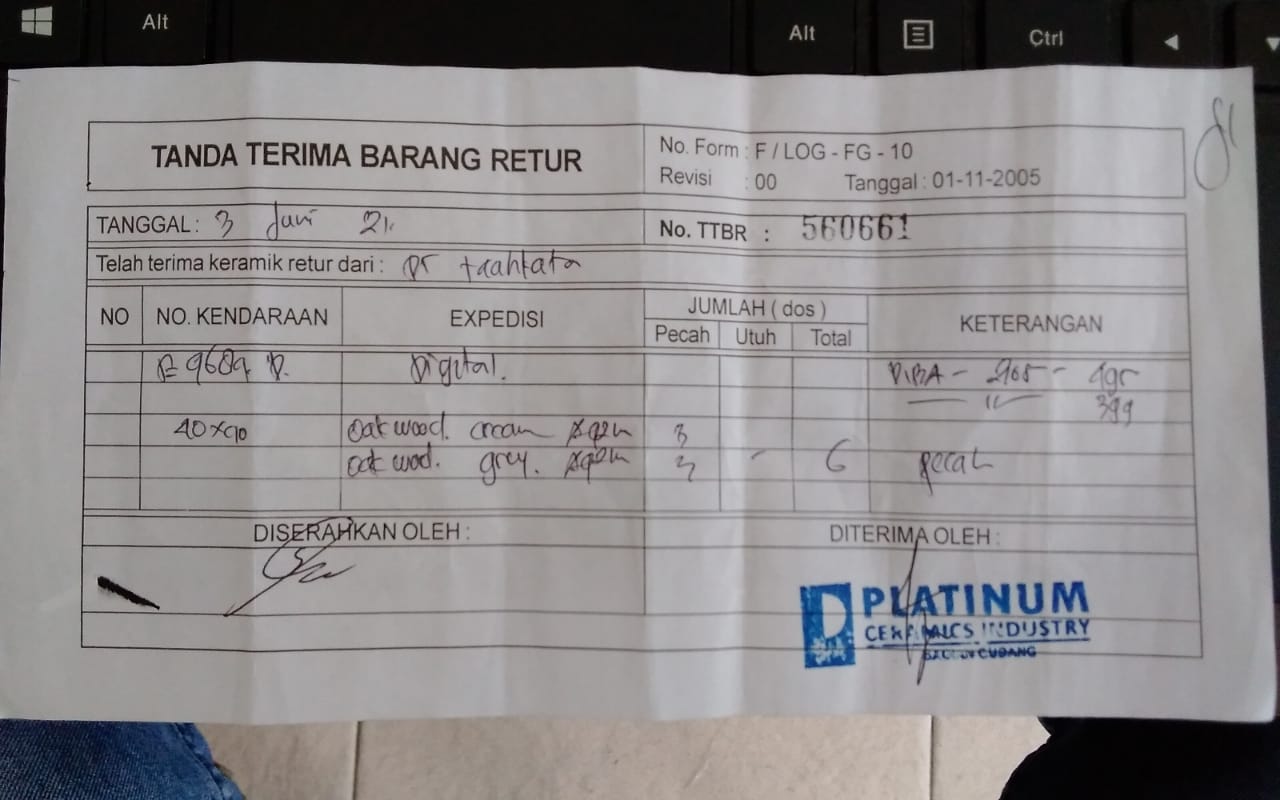 Alt Alt Ctrl
TANDA TERIMA BARANG RETUR
No. Form : F / LOG - FG - 10
Revisi : 00 Tanggal : 01-11-2005
TANGGAL : 3 Juni 21.
No. TTBR : 560661
Telah terima keramik retur dari : PT
NO NO. KENDARAAN EXPEDISI JUMLAH ( dos ) KETERANGAN
Pecah Utuh Total
Digital.
40x40 Oak wood. cream 3
Oak wod. grey. 3 - 6 pecah
DISERAHKAN OLEH : DITERIMA OLEH :
PLATINUM
CERAMICS INDUSTRY